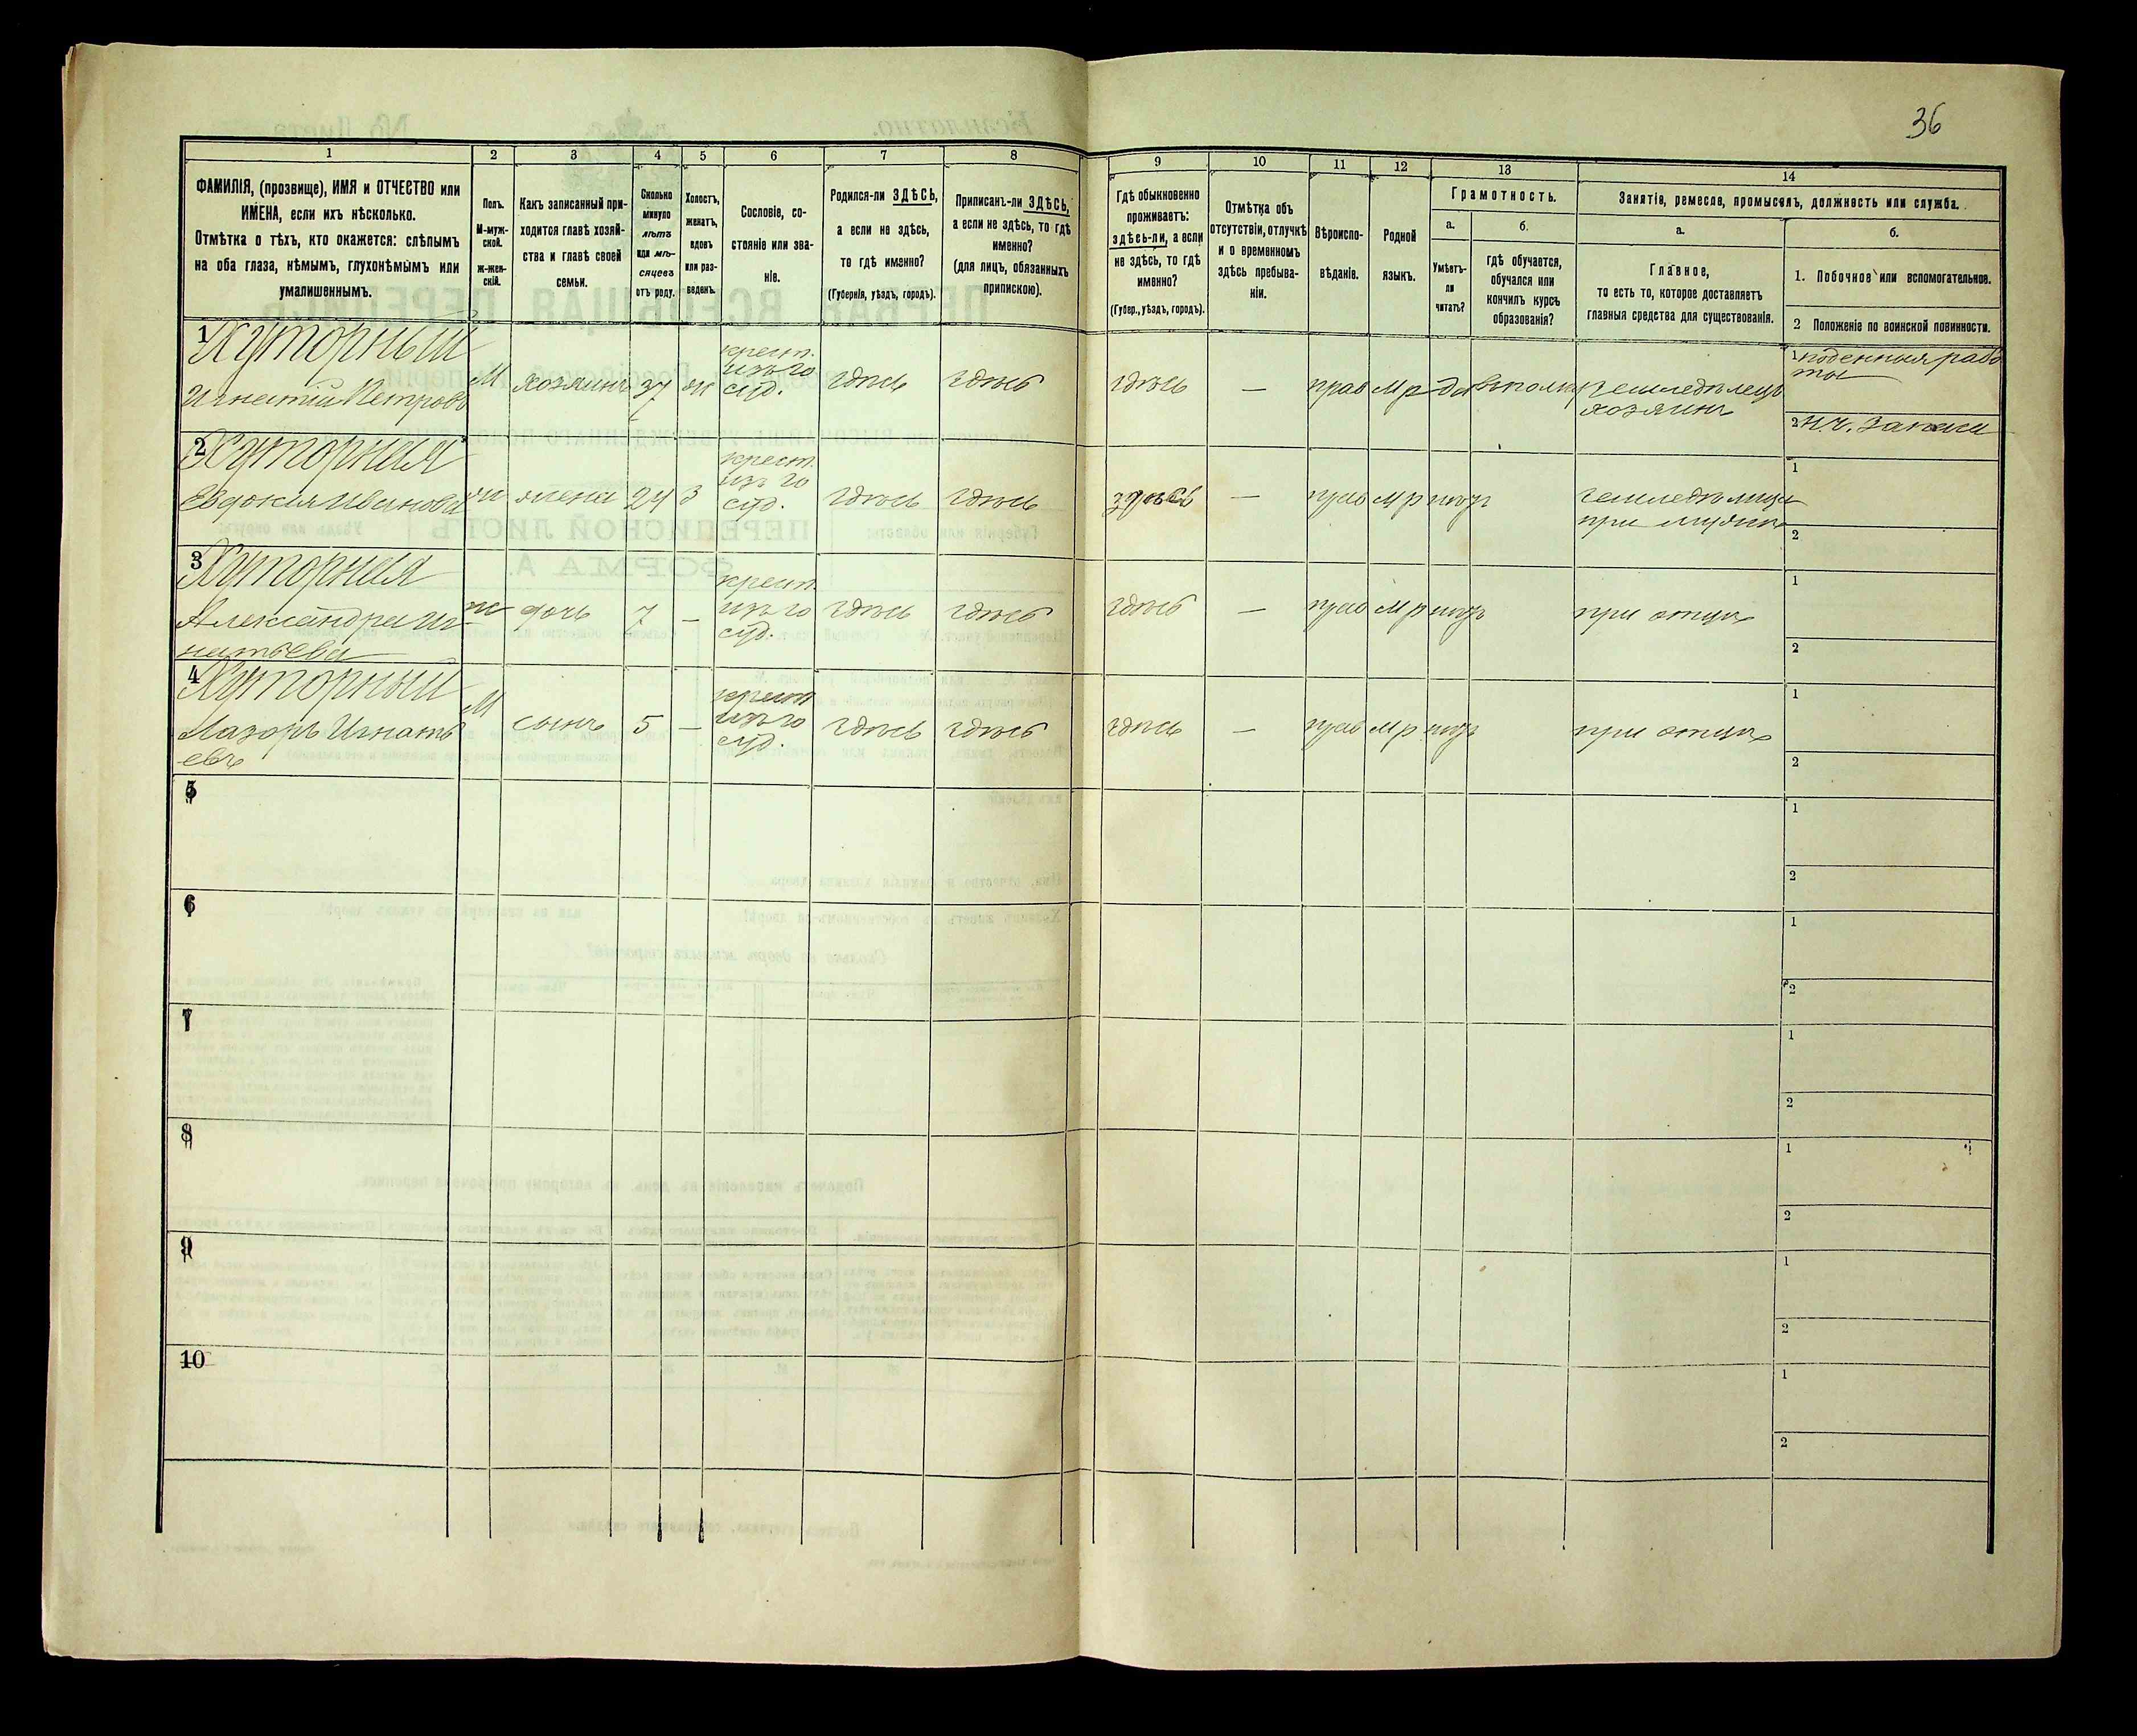 36
1
2
3
4
5
6
7
8
9
10
11
12
13
14
ФАМИЛІЯ, (прозвище), ИМЯ и ОТЧЕСТВО или
ИМЕНА, если ихъ нѣсколько.
Отмѣтка о тѣхъ, кто окажется: слѣпымъ
на оба глаза, нѣмымъ, глухонѣмымъ или
умалишеннымъ.
Полъ.
М-муж-
ской.
Ж-жен-
скій.
Какъ записанный при-
ходится главѣ хозяй-
ства и главѣ своей
семьи.
Сколько
минуло
лѣтъ
или мѣ-
сяцевъ
отъ роду.
Холостъ,
женатъ,
вдовъ
или раз-
веденъ.
Сословіе, со-
стояніе или зва-
ніе.
Родился-ли ЗДѢСЬ,
а если не здѣсь,
то гдѣ именно?
(Губернія, уѣздъ, городъ).
Приписанъ-ли ЗДѢСЬ,
а если не здѣсь, то гдѣ
именно?
(для лицъ, обязанныхъ
припискою).
Гдѣ обыкновенно
проживаетъ:
здѣсь-ли, а если
не здѣсь, то гдѣ
именно?
(Губер., уѣздъ, городъ).
Отмѣтка объ
отсутствіи, отлучкѣ
и о временномъ
здѣсь пребыва-
ніи.
Вѣроиспо-
вѣданіе.
Родной
языкъ.
Грамотность.
а.
Умѣетъ-
ли
читать?
б.
гдѣ обучается,
обучался или
кончилъ курсъ
образованія?
Занятія, ремесло, промыселъ, должность или служба.
а.
Главное,
то есть то, которое доставляетъ
главныя средства для существованія.
б.
1. Побочное или вспомогательное.
2 Положеніе по воинской повинности.
1 Хуторный
Игнатій Петровъ
М хозяинъ 37 ж
крест.
изъ го
суд.
здѣсь здѣсь здѣсь — прав М р да
земледѣлецъ
хозяинъ
1 поденныя рабо
ты
2 н.ч. запаса
2 Хуторная
Евдокия Иванова
ж жена 24 з
крест.
изъ го
суд.
здѣсь здѣсь здѣсь — прав м р
при мужѣ
1
2
3 Хуторная
Александра Иг-
натьева
ж дочь 7 —
крест.
изъ го
суд.
здѣсь здѣсь здѣсь — прав м р
при отцѣ
1
2
4 Хуторный
Лазоръ Игнать
евъ
М сынъ 5 —
крест
изъ го
суд.
здѣсь здѣсь здѣсь — прав м р
при отцѣ
1
2
5
1
2
6
1
2
7
1
2
8
1
2
9
1
2
10
1
2